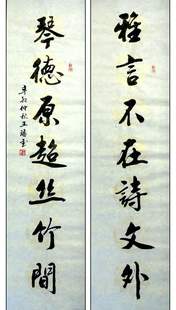 雅言不在詩文外
琴德原超丝竹間
辛卯仲秋王瑞雪